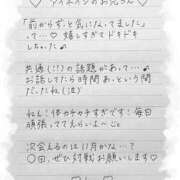 ♡ アイネイスのお兄さん ♡
「前からずっと気になってました」
って…♡ 嬉しすぎてドキドキ
しちゃった♪
共通(!!)の話題があって…
お話してたら時間あっという間
だったね(泣)
ねぇ！体ガチガチすぎです！毎日
頑張っててえらいよ〜♡
次会えるのは11月かな…？
〇回、ぜひ対戦お願いします♡